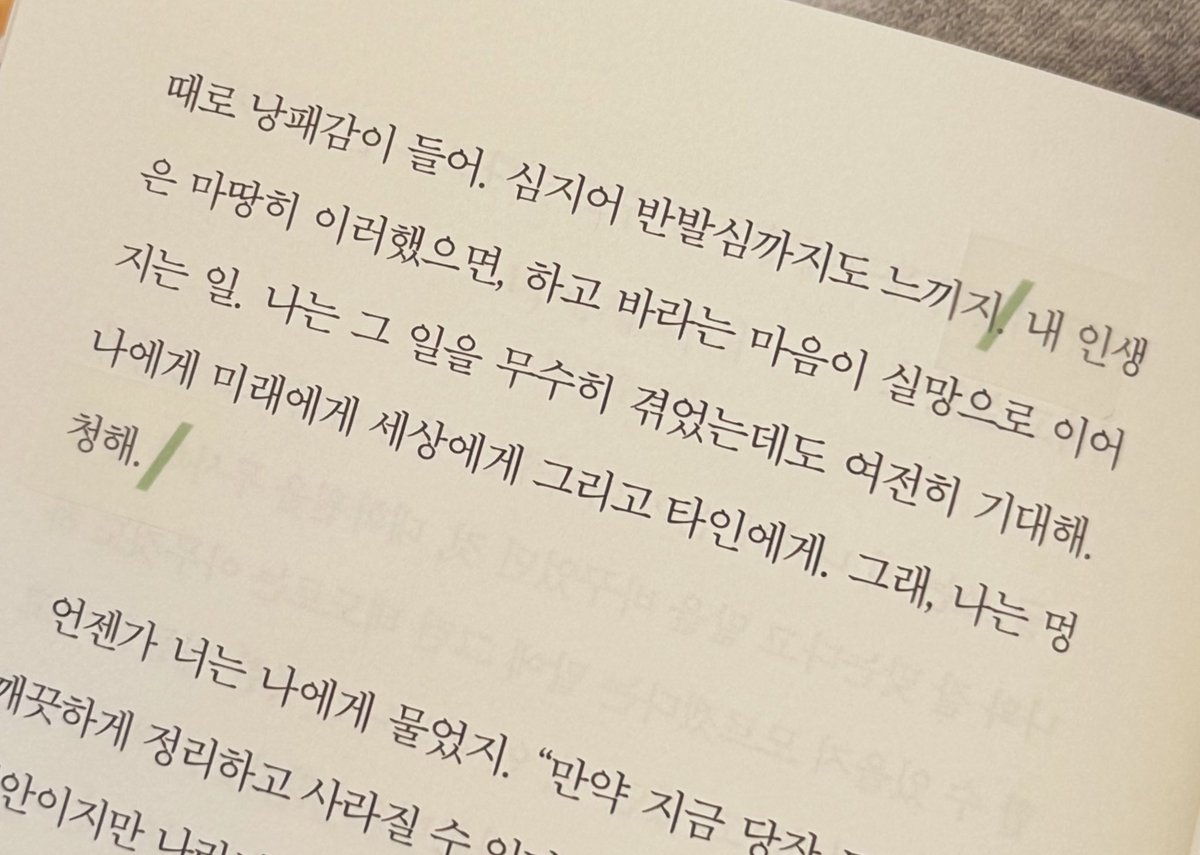 때로 낭패감이 들어. 심지어 반발심까지도 느끼지. 내 인생
은 마땅히 이러했으면, 하고 바라는 마음이 실망으로 이어
지는 일. 나는 그 일을 무수히 겪었는데도 여전히 기대해.
나에게 미래에게 세상에게 그리고 타인에게. 그래, 나는 멍
청해.
언젠가 너는 나에게 물었지. “만약 지금 당장
깨끗하게 정리하고 사라질 수